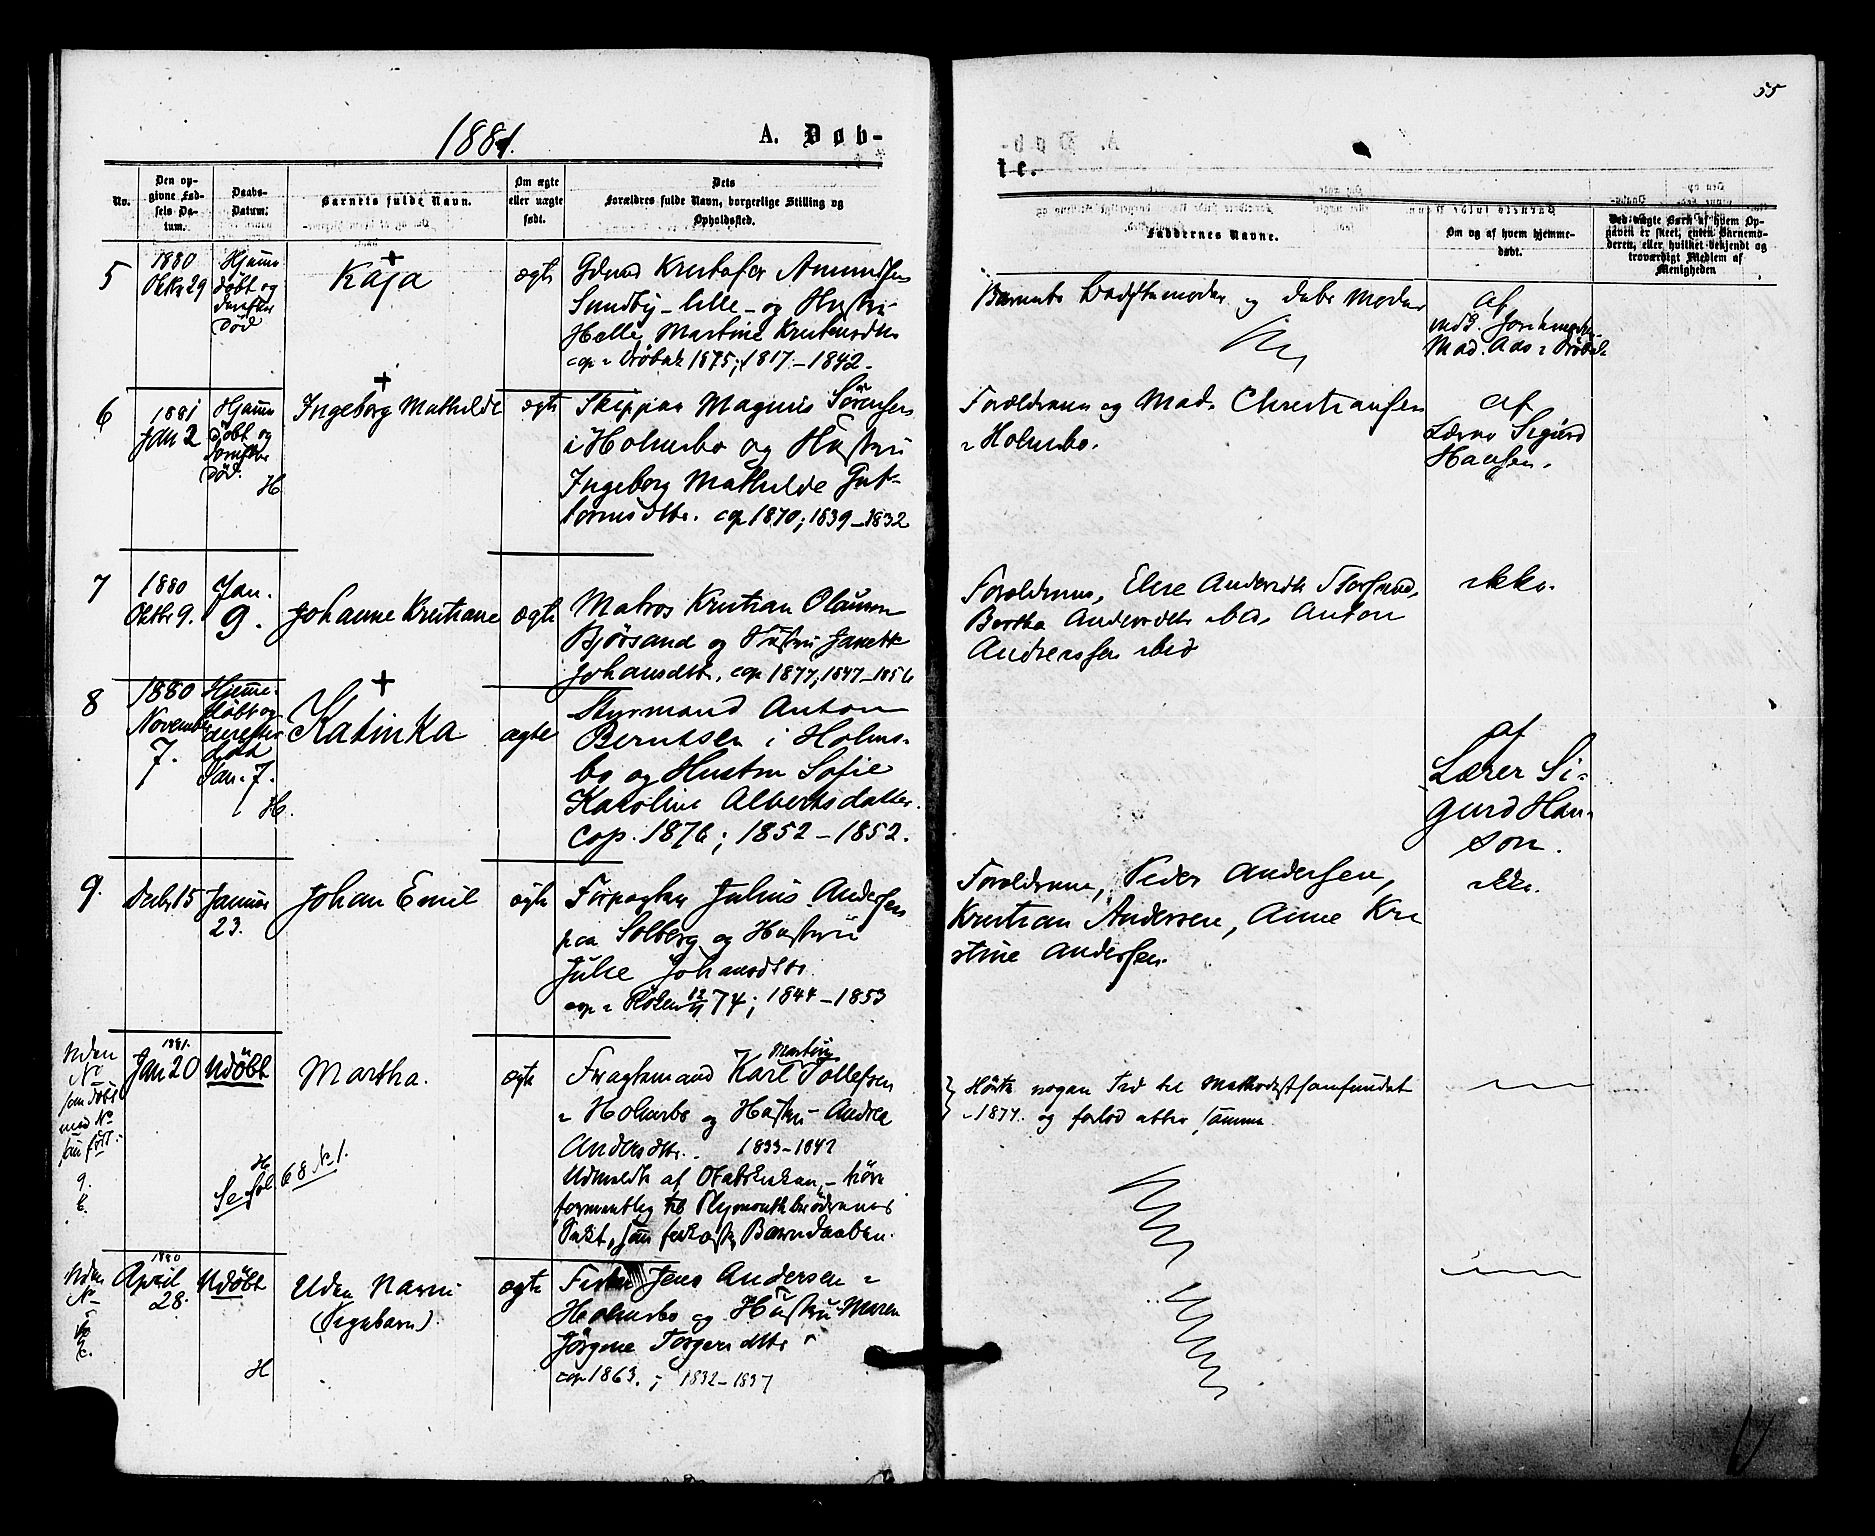 55
1881.
A. Døb-
te.
No.
Den op-
givne Fød-
sels Da-
tum.
Daabs-
Datum.
Barnets fulde Navn.
Om ægte
eller uægte
født.
Dets
Forældres fulde Navn, borgerlige Stilling og
Opholdssted.
Faddernes Navne.
Om og af hvem hjemme-
døbt.
Ved uægte Børn af hvem Op-
gaven er skeet, enten Barnemo-
deren, eller hvilket bekjendt og
troværdigt Medlem af
Menigheden
5
1880
Oktbr 29
Hjemme
døbt og
derefter
død
Kaja
ægte
Kristofer Amundsen
Sundby-lille - og Hustru
Helle Martine Kristensdtr
cop i Drøbak 1875; 1817 - 1842.
Barnets Bedstemoder og dets Moder
af
Mad. Aas i Drøbak
6
1881
Jan 2
Hjemme
døbt og
derefter
død.
H
Ingeborg Mathilde
ægte
Skipper Magnus Sørensen
i Holmsbo og Hustru
Ingeborg Mathilde Gut-
tormsdtr. cop 1870; 1839 - 1832
Forældrene og Mad. Christiansen
i Holmsbo.
af
Lærer Sigurd
Hansen.
7
1880
Oktbr 9.
Jan.
9.
Johanne Kristiane
ægte
Matros Kristian Olausen
Bjørsand og Hustru Janette
Johansdtr. cop 1877; 1847 - 1856
Forældrene, Elise Andersdtr Storsand,
Berthe Andersdtr ibid, Anton
Andreassen ibid
ikke.
8
1880
November
7.
Hjemme-
døbt og
derefter
død
Jan. 7.
H.
Katinka
ægte
Styrmand Anton
Berntsen i Holms-
bo og Hustru Sofie
Karoline Albertsdatter.
Cop. 1876; 1852 - 1852.
af
Lærer Si-
gurd Han-
son.
9.
Decbr 15
Januar
23.
Johan Emil
ægte
Forpagter Julius Andersen
paa Solberg og Hustru
Julie Johansdtr.
cop i Røken 74; 1844 - 1853
Forældrene, Peder Andersen,
Kristian Andersen, Anne Kri
stine Andersen.
ikke.
Uden
No
som døbt
med No
som født.
1881.
Jan 20
Udøbt
H
Se Fol 68 No 1.
Martha.
ægte
Martin
Fragtemand Karl Tollefsen
i Holmsbo og Hustru Andrea
Andersdtr. 1833 - 1842
Udmeldte af Statskirken, - høre
formentlig til Plymouthbrødrenes
Sekt, som forkaster Barnedaaben.
Hørte nogen Tid til Methodistsamfundet
i 1877. og forlod atter samme.
Uden
No
1880
April
28.
Udøbt
H
Uden Navn
(Pigebarn).
ægte
Fisker Jens Andersen i
Holmsbo og Hustru Maren
Jørgine Torgersdtr
cop 1863.; 1832 - 1837